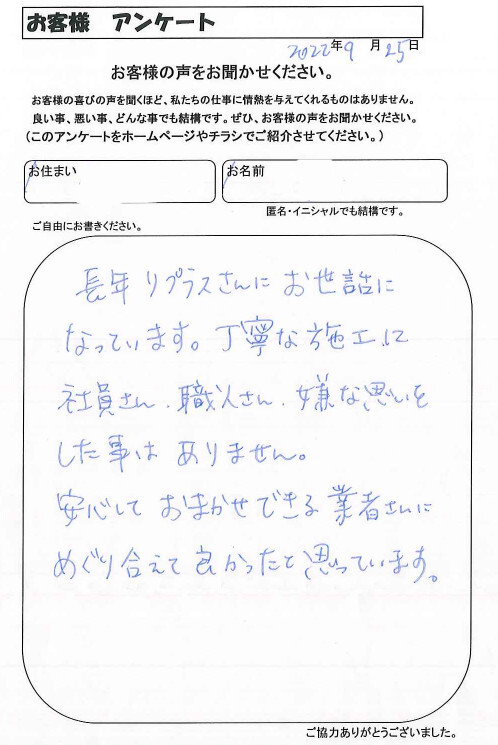 お客様 アンケート
2022年9月25日
お客様の声をお聞かせください。
お客様の喜びの声を聞くほど、私たちの仕事に情熱を与えてくれるものはありません。
良い事、悪い事、どんな事でも結構です。ぜひ、お客様の声をお聞かせください。
(このアンケートをホームページやチラシでご紹介させてください。)
お住まい
お名前
匿名・イニシャルでも結構です。
ご自由にお書きください。
長年リプラスさんにお世話に
なっています。丁寧な施工に
社員さん、職人さん、嫌な思いを
した事はありません。
安心しておまかせできる業者さんに
めぐり合えて良かったと思っています。
ご協力ありがとうございました。